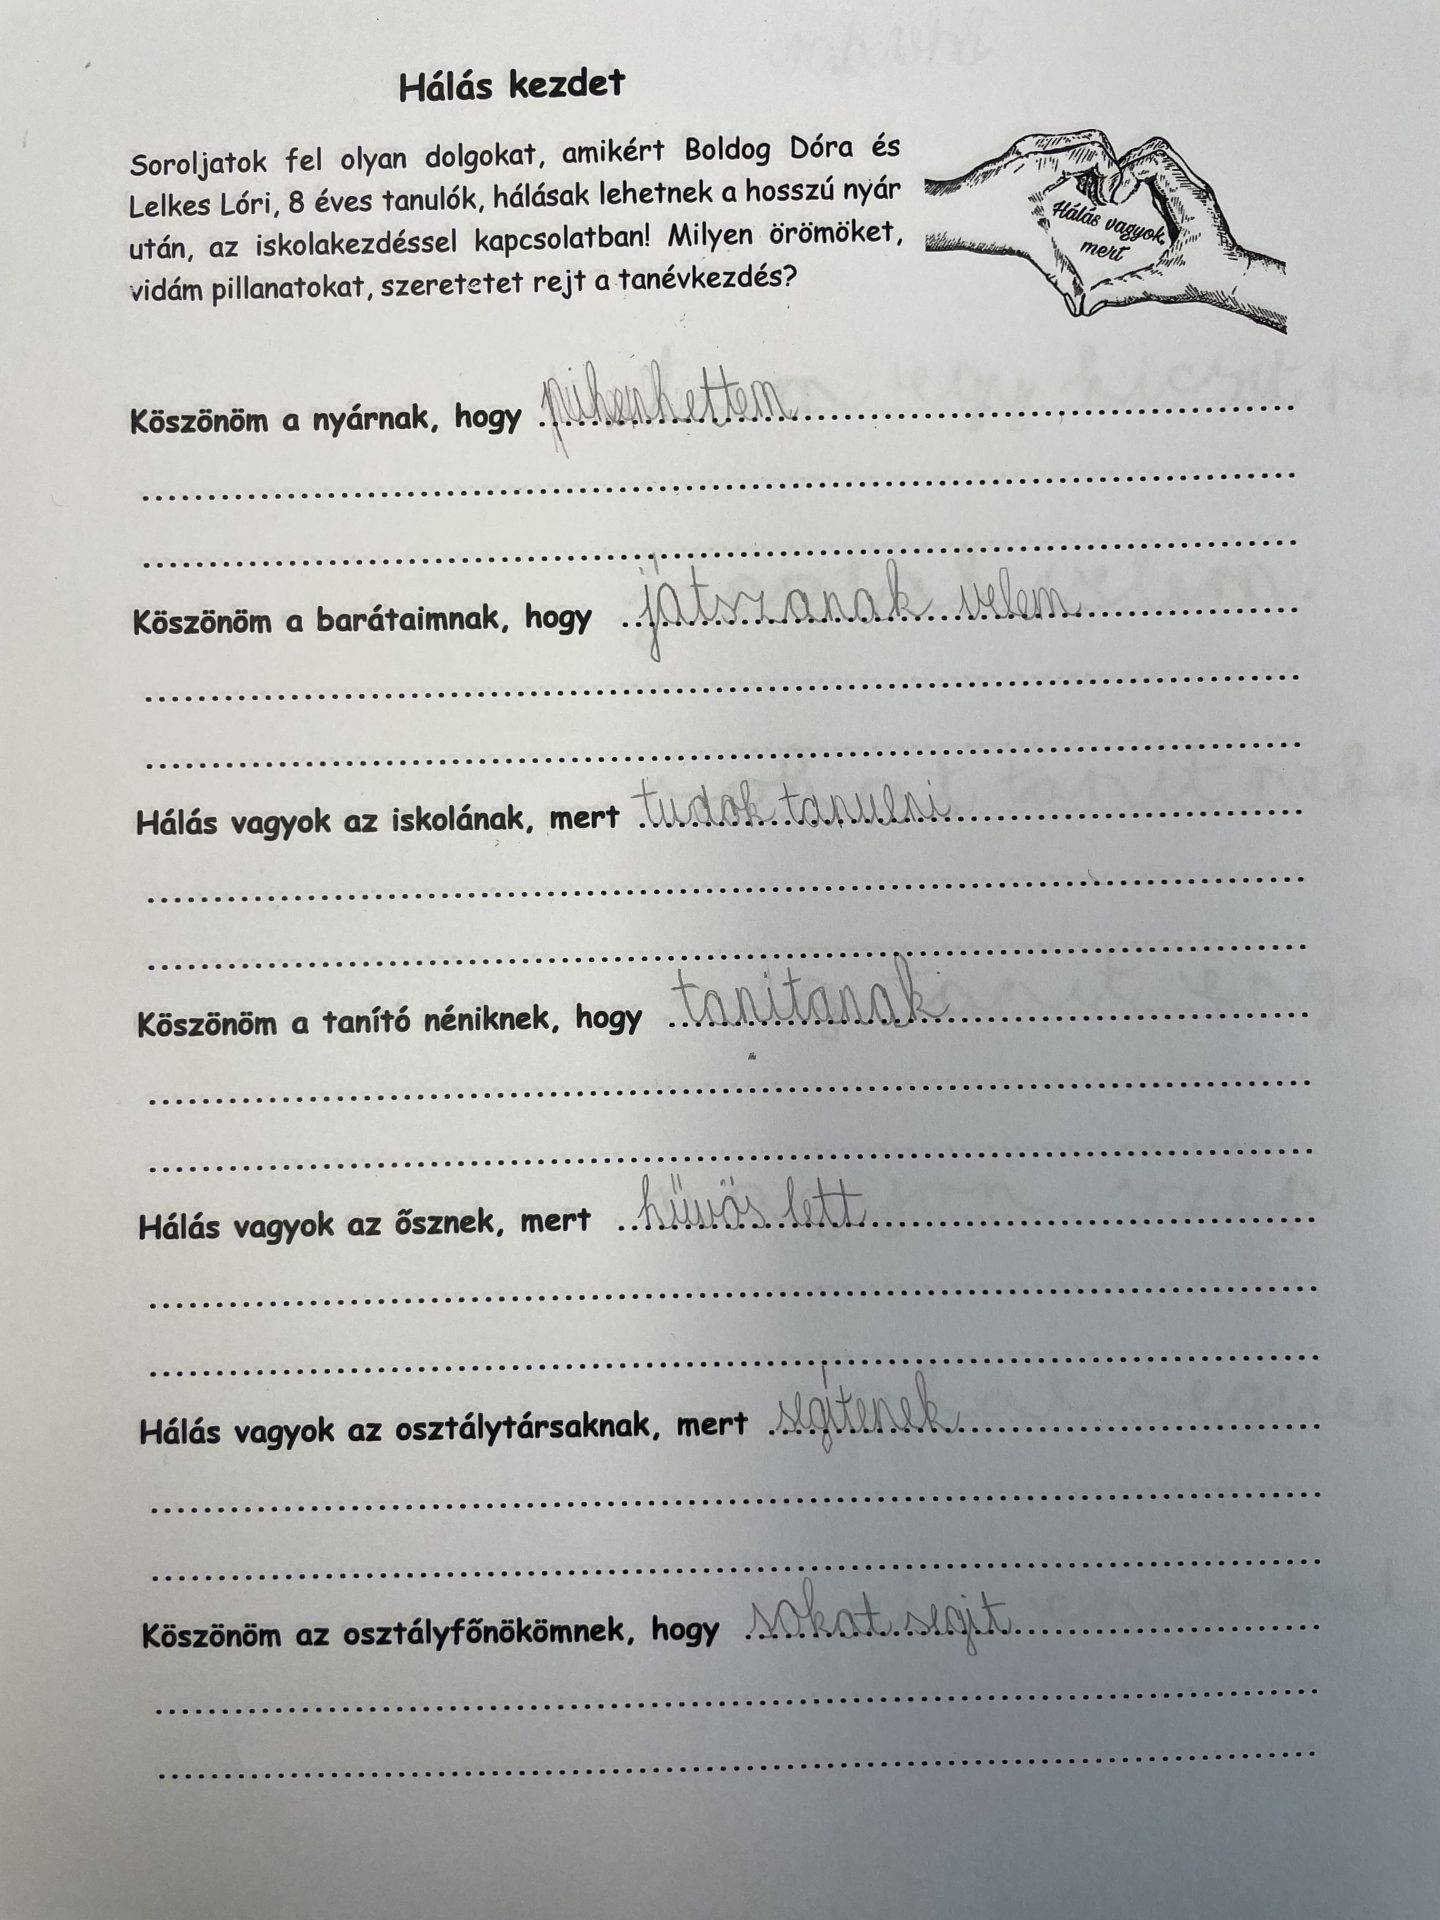 Hálás kezdet
Soroljatok fel olyan dolgokat, amikért Boldog Dóra és
Lelkes Lóri, 8 éves tanulók, hálásak lehetnek a hosszú nyár
után, az iskolakezdéssel kapcsolatban! Milyen örömöket,
vidám pillanatokat, szeretetet rejt a tanévkezdés?
Hálás vagyok,
mert
Köszönöm a nyárnak, hogy pihenhettem
Köszönöm a barátaimnak, hogy játszanak velem
Hálás vagyok az iskolának, mert tudok tanulni
Köszönöm a tanító néniknek, hogy tanitanak
Hálás vagyok az ősznek, mert hüvös lett
Hálás vagyok az osztálytársaknak, mert segítenek
Köszönöm az osztályfőnökömnek, hogy sokat segit